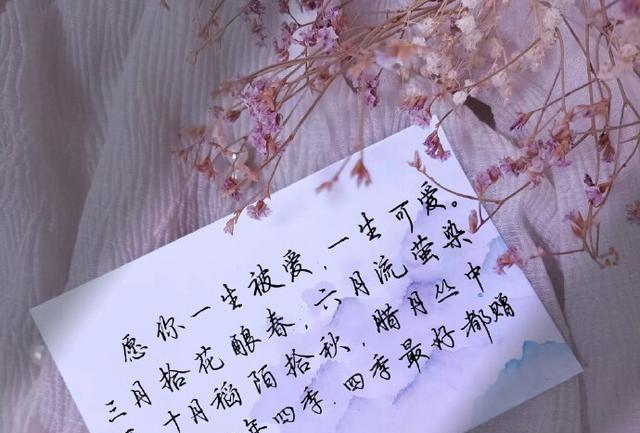 愿你一生被爱,一生可爱。
三月拾花酿春,六月流萤染
十月稻陌拾秋,腊月丛中
年四季.四季最好都赠